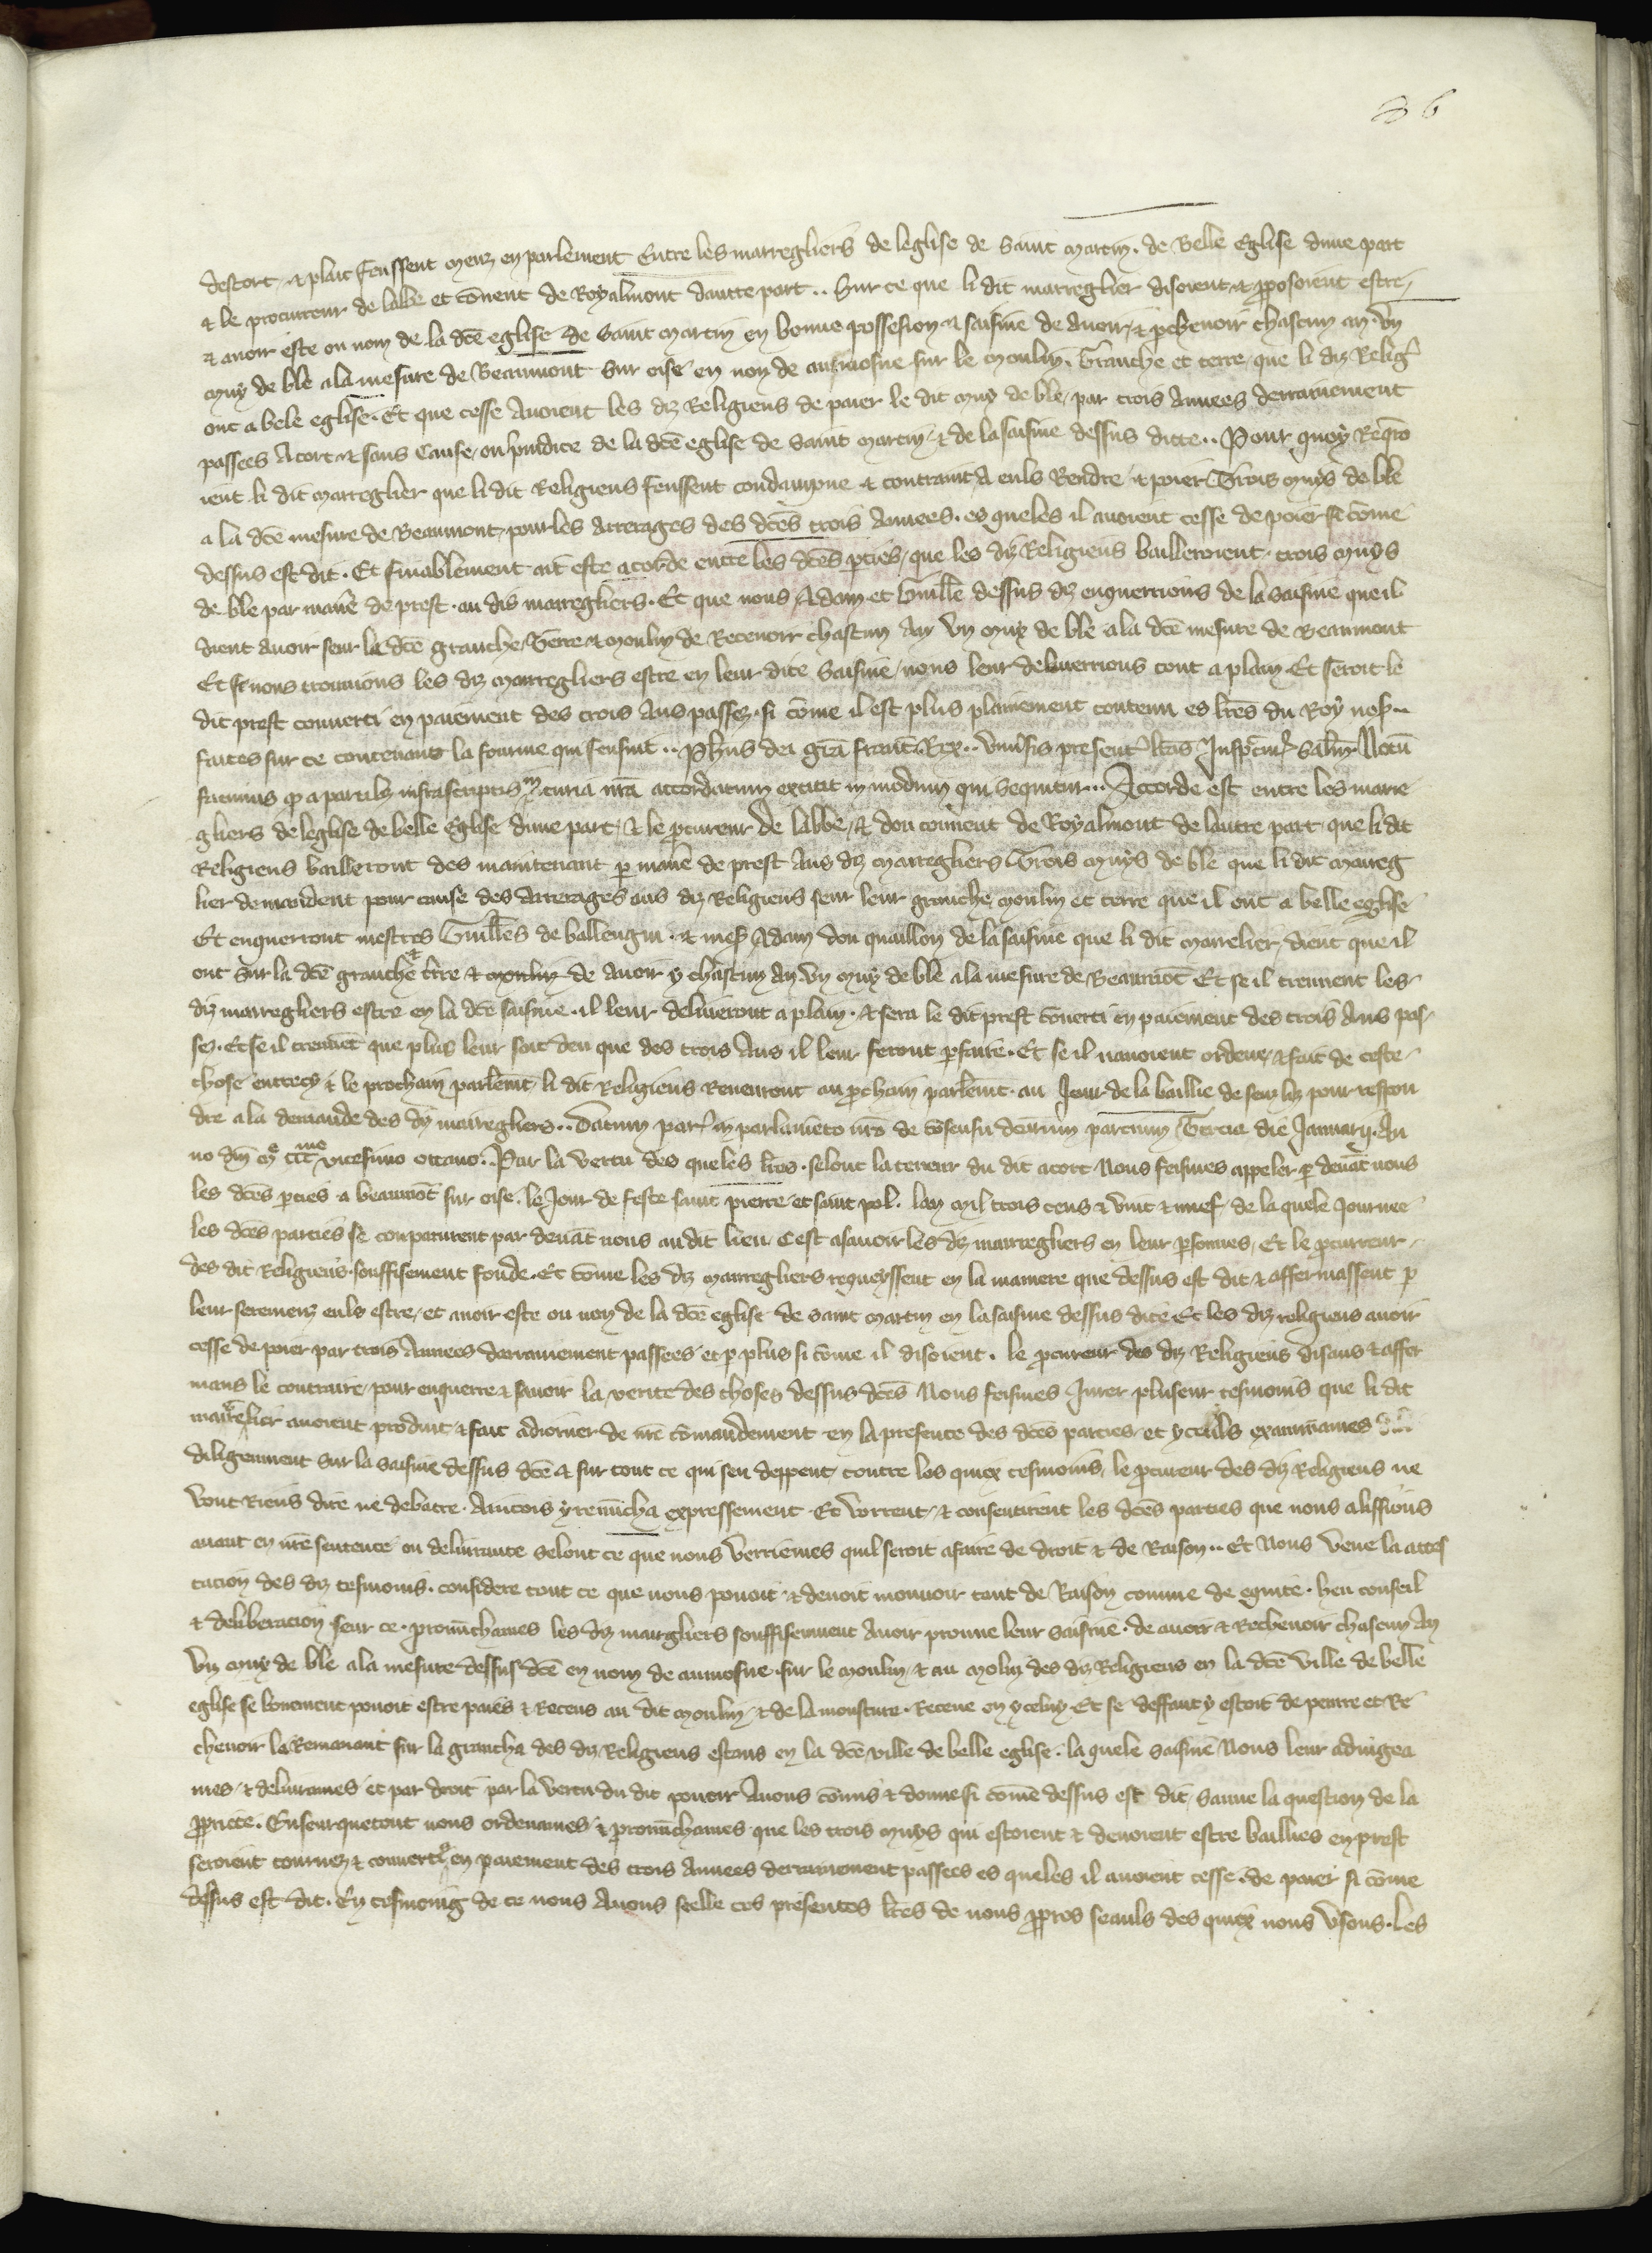 36
descort & plait feussent meuz en parlement Entre les marregliers de leglise de Saint martin de Belle Eglise dune part
& le procureur de labbe et couent de Royalmont dautre part .. Sur ce que li dit marreglier disoient & pposoient estre
& auoir este ou nom de la dce eglise de Saint martin en bonne possesion & saisine de auoir & pchevoir chascun an vn
muy de ble a la mesure de Beaumont Sur oise en non de aumosne sur le moulin, Granche et terre que li diz Relig
ont a bele eglise. Et que cesse Auoient les diz Religieus de paier le dit muy de ble par trois Annees derrainement
passees Atort & sans Cause ou piudice de la dce eglise de Saint martin & de la saisine dessus ditte .. Pour quoy Requeo
ient li dit marreglier que li dit Religieus feussent condampne & contraint A euls Rendre & poier Trois muys de ble
a la dce mesure de Beaumont, pour les arrerages des dces trois Annees. es queles il auoient cesse de poier si come
dessus est dit. Et finablement ait este acorde entre les dces pties, que les diz Religieus bailleroient trois muys
de ble par manere de prest. au dis marregliers. Et que nous Adam et Guille dessus diz enquerrions de la saisine que il
dient auoir seur la dce granche, Terre & moulin de Receuoir chascun An vn muy de ble a la dce mesure de Beaumont
Et se nous trouuions les diz marregliers estre en leur dite Saisine, nous leur deliuerrions tout a plain. Et seroit le
dit prest conuerti en paiement des trois Ans passez. si come il est plus plainement contenu es lres du Roy nos..
faites sur ce contenant la fourme qui sensuit .. Phus dei gra franc Rex .. Vniusis present lras Inspectur Salm Notu
facimus q a partibz infrascriptis in curia nra accordatum extitit in modum qui sequitur ... Accorde est entre les marre
gliers de leglise de belle Eglise dune part, & le pcureur de labbe, & dou couuent de Royalmont de lautre part que li dit
Religieus bailleront des maintenant p manere de prest Aus diz marregliers Trois muys de ble que li dit marreg
lier demandent pour cause des Arrerages aus diz Religieus seur leur granche, moulin et terre que il ont a belle eglise
Et enquerront mestres Guilles de ballengni & mess Adam dou quaillou de la saisine que li dit marrelier, dient que il
ont Sur la dce granche & trre & moulin de Auoir y chascun An vn muy de ble a la mesure de Beaumot Et se il treuuent les
diz marregliers estre en la dce saisine il leur deliueront a plain. & sera le dit prest couerti en paiement des trois Ans pas
sez. Et se il treuuet que plus leur soit deu que des trois Ans il leur feront pfaire. Et se il nauoient ordene & fait de ceste
chose entrecy & le prochain parlemt li dit Religieus Reuenront au pchain parlemt. au Jour de la baillie de senliz pour respon
dre a la demande des diz marregliers .. Datum paris in parlameto nro de cosensu dcarum parcium Tercia die Januarij. An
no dni mo ccc me vicesimo octauo. Par la vertu des queles lres. selonc la teneur du dit acort Nous feismes appeler p deuat nous
les dces pties a beaumot sur oise. le Jour de feste saint pierre et saint pol. lan mil trois cens & vint & nuef de la quele Journee
les dces parties se comparurent par deuat nous au dit lieu. Cest asauoir les diz marregliers en leur psonnes, Et le pcurreur
des dit Religieus souffisement fonde. Et come les diz marregliers requeyssent en la maniere que dessus est dit & affermassent p
leur seremenz euls estre, et auoir este ou non de la dce eglise de saint martin en la saisine dessus dite Et les diz religieus auoir
cesse de poier par trois Annees darrainement passees et p plus si come il disoient. le pcureur des diz Religieus disans & affer
mans le contraire, pour enquerre & sauoir la verite des choses dessus dces Nous feismes Jurer pluseur tesmoins que li dit
marrelier auoient produit & fait adiorner de nre comandement en la presente des dces parties et yceuls examinames
diligenment sur la saisine dessus dce & sur tout ce qui sen deppent, contre les quiex tesmoins, le pcureur des diz Religieus ne
vout Riens dire ne debatre. Aincois y renucha expressement. Et vorrent & consentirent les dces parties que nous alissions
auant en nre sentence ou deliurance selonc ce que nous verriemes quil seroit a faire de droit & de Raison .. Et Nous veue la attes
tacion des diz tesmoins. considere tout ce que nous pouoit & deuoit mouuoir tant de Raison comme de equite. heu conseil
& deliberacion seur ce. pronuchames les diz margliers souffisenment auoir prouue leur saisine. de auoir & Rechevoir chascun An
Vn muy de ble a la mesure dessus dce en nom de aumosne. sur le moulin, & au molin des diz Religieus en la dce ville de belle
eglise se bonement pouoit estre paies & Receus au dit moulin & de la mousture. Receue en yceluy. Et se deffaut y estoit de penrre et Re
cheuoir le Remanant sur la grancha des diz Religieus estans en la dce ville de belle eglise. la quele saisine Nous leur adiugea
mes & deliurames et par droit par la vertu du dit pouoir Auons comis & donne si come dessus est dit, Sauue la question de la
ppriete. Enseurquetout nous ordenames & pronuchames que les trois muys qui estoient & deuoient estre baillies en prest
seroient tournez & conuertiz en paiement des trois annees derrainement passees es queles il auoient cesse. de paier si come
dessus est dit. En tesmoing de ce nous Auons seelle ces presentes lres de nous ppres seauls des quiex nous vsons. Les